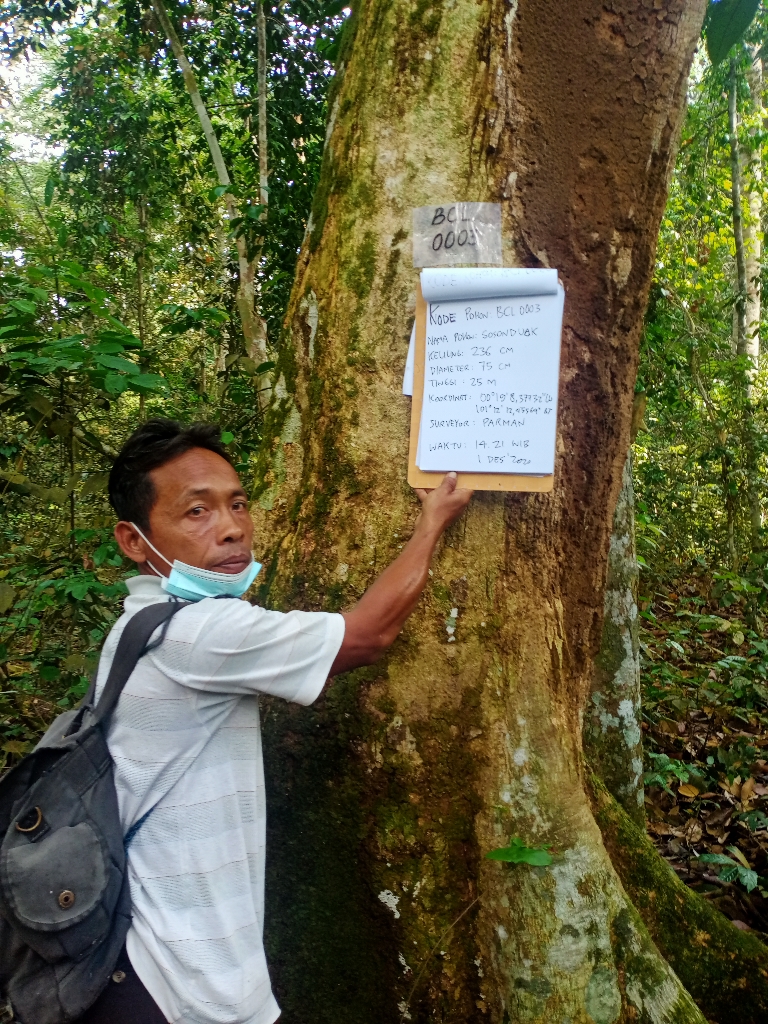 BCL
0003
KODE POHON BCL 0003
NAMA POHON: SOSONDUAK
KELILING: 236 CM
DIAMETER: 75 CM
TINGGI: 25 M
KOORDINAT: 00°19'
101°12'
SURVEYOR: PARMAN
WAKTU: 14.21 WIB
1 DES' 2020